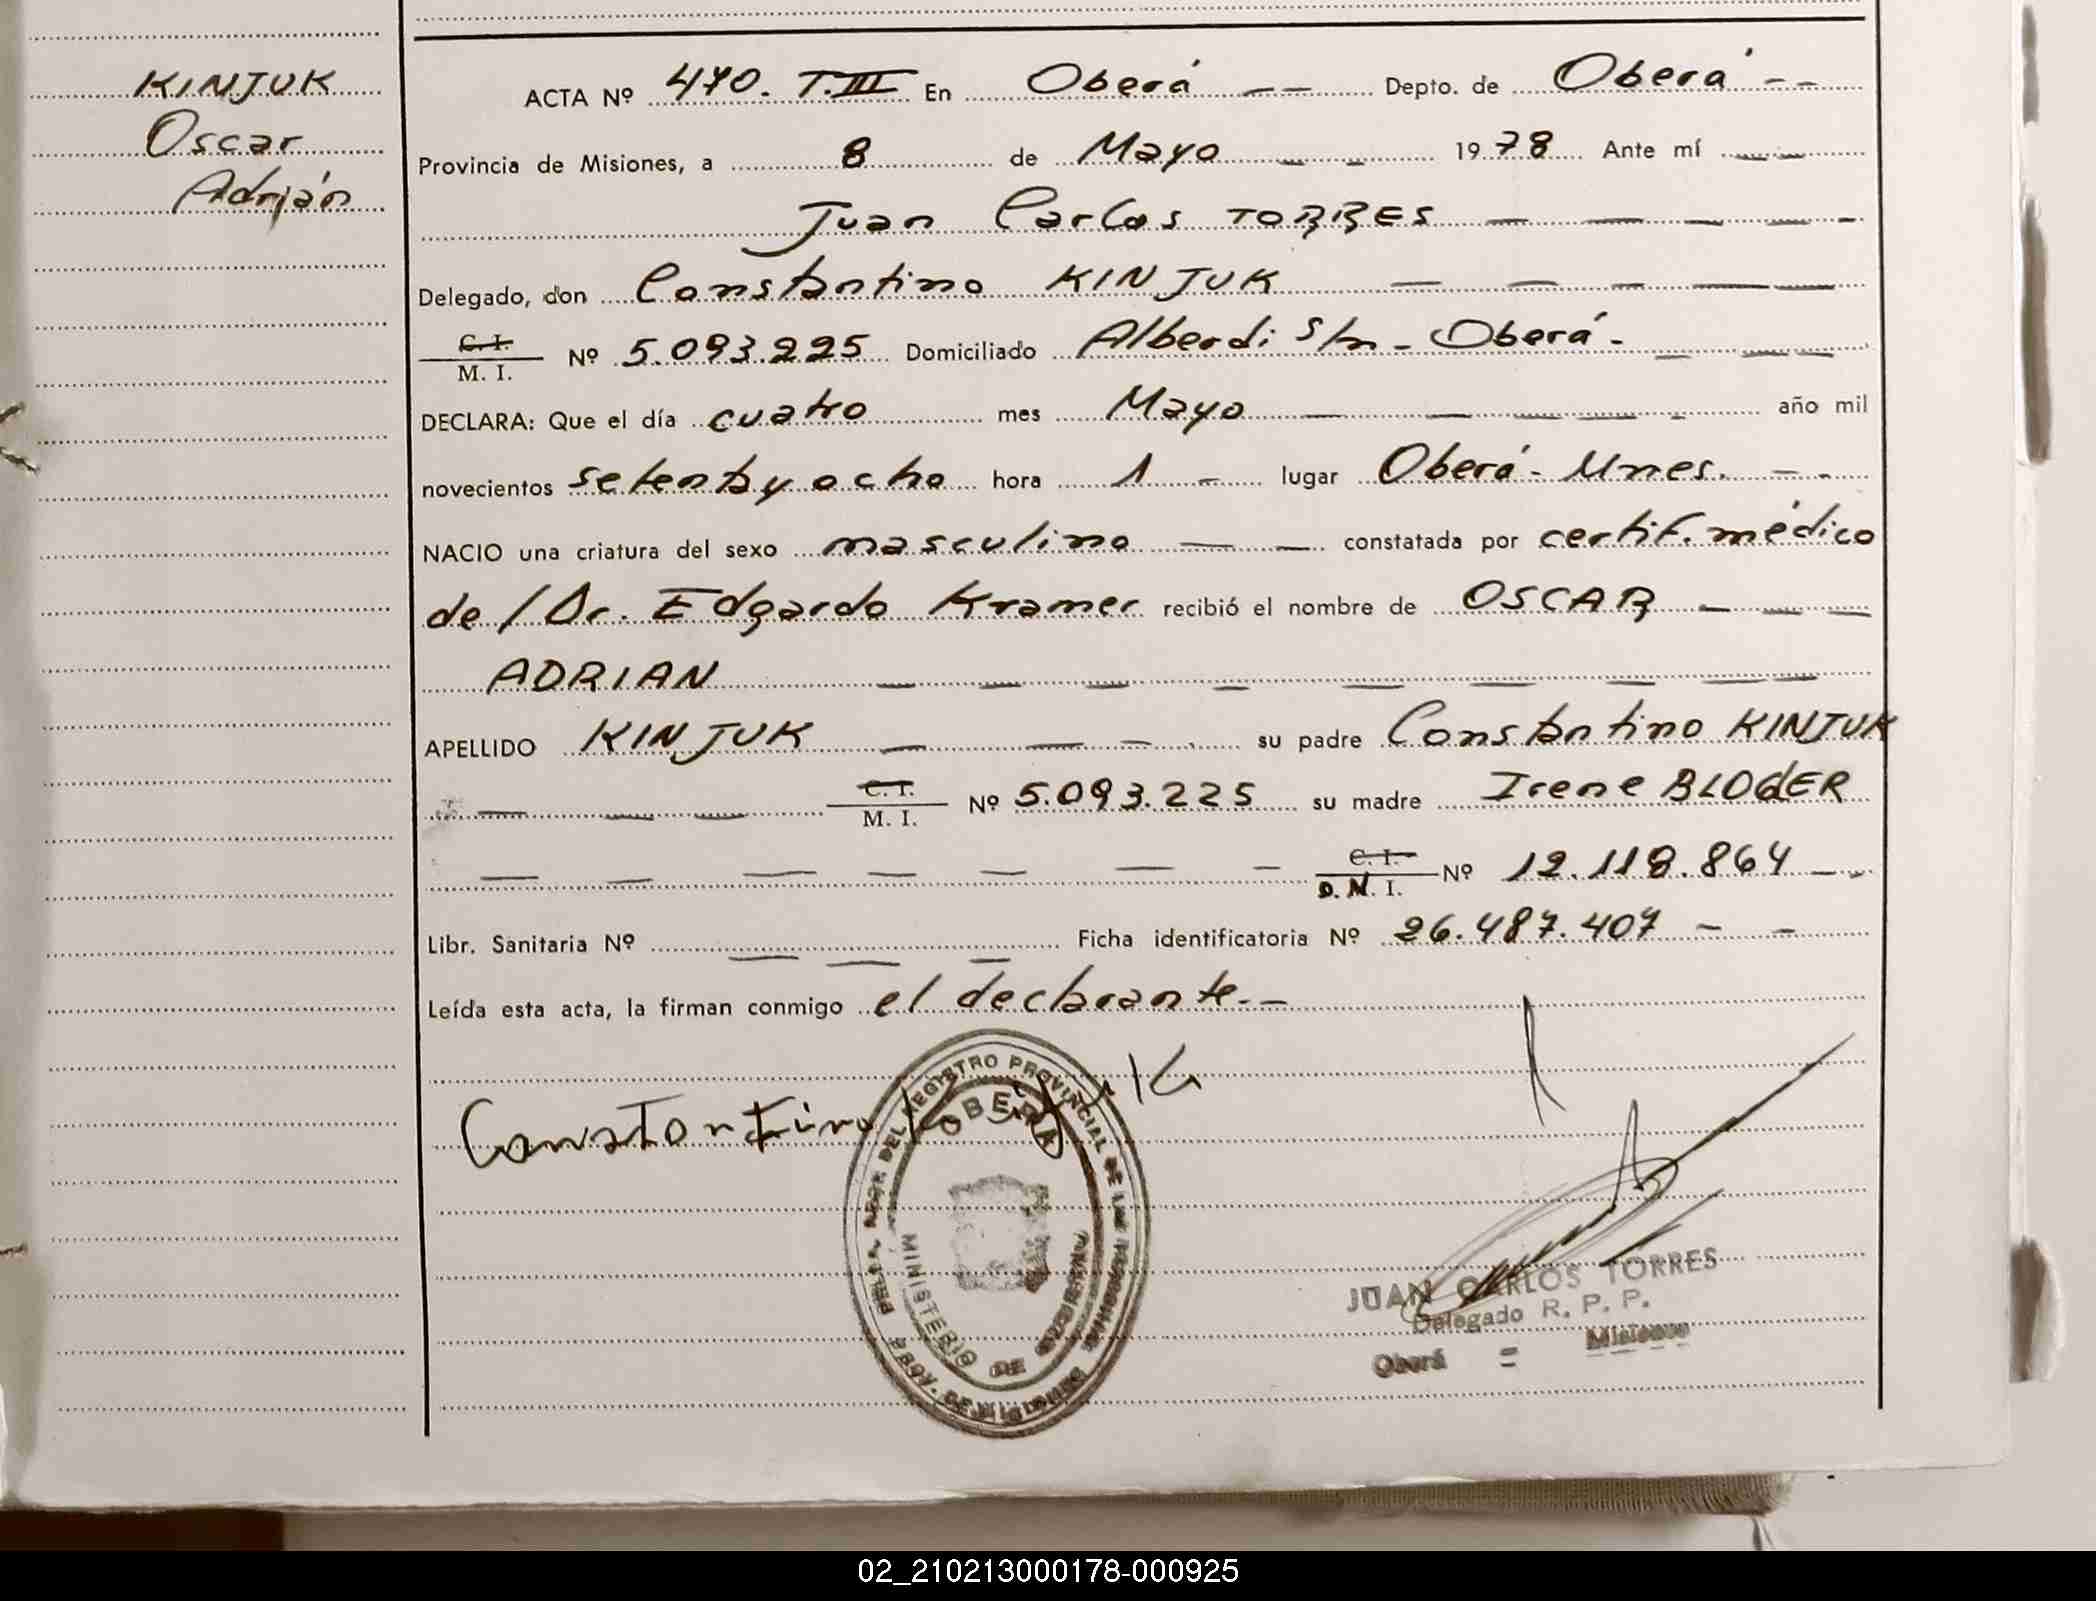 KINJUK
Oscar
Adrián
ACTA Nº 470. T.III En Oberá Depto. de Oberá
Provincia de Misiones, a 8 de Mayo 1978 Ante mí
Juan Carlos TORRES
Delegado, don Constantino KINJUK
C. I.
M. I. Nº 5.093.225 Domiciliado Alberdi s/n - Oberá -
DECLARA: Que el día cuatro mes Mayo año mil
novecientos setenta y ocho hora 1 - lugar Oberá - Mnes.
NACIO una criatura del sexo masculino constatada por certif. médico
de/Dr. Edgardo Kramer recibió el nombre de OSCAR
ADRIAN
APELLIDO KINJUK su padre Constantino KINJUK
C. I.
M. I. Nº 5.093.225 su madre Irene BLODER
C. I.
D. N. I. Nº 12.118.864
Libr. Sanitaria Nº Ficha identificatoria Nº 26.487.407
Leída esta acta, la firman conmigo el declarante.-
Constantino
REGISTRO PROVINCIAL DE LAS PERSONAS
OBERÁ
MINISTERIO DE GOBIERNO
JUAN CARLOS TORRES
Delegado R. P. P.
Oberá = Misiones
02_210213000178-000925